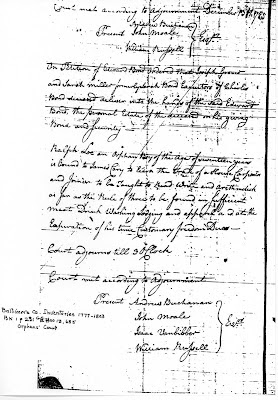 Court met according to Adjournment December 13th 178
Andrew Buchanan
Present John Moale Esqrs.
William Russell
On Petition of Edward Bond Ordered that Joseph
and Sarah Miller formerly Sarah Bond Executors of Charles
Bond deceased deliver into the hands of the said Edward
Bond, the personal Estate of the deceased on his giving
Bond and Security
Ralph Lee an Orphan Boy of the Age of seventeen years
is bound to James Cory to learn the Trade of a House Carpenter
and Joiner to be Taught to Read Write and Arithmetick
as far as the Rule of three to be found in sufficient
meat Drink Washing Lodging and apparel and at the
Expiration of his time Customary freedom Dues
Court adjourns till 3 oClock
Court met according to Adjournment
Present Andrew Buchanan
John Moale
Isaac Vanbibber Esqrs.
William Russell
Baltimore Co. Inventories 1777-1803
Orphans' Court